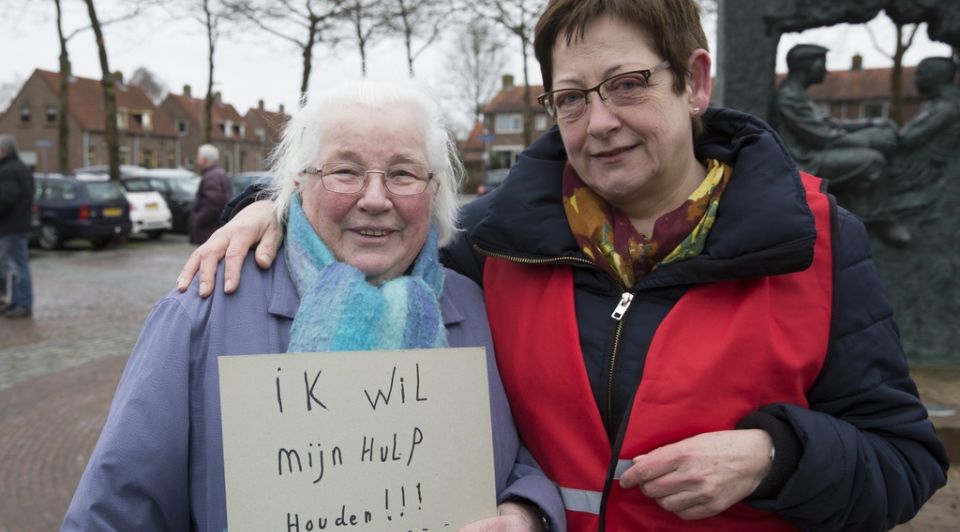 iK WiL
mijn HULP
Houden!!!